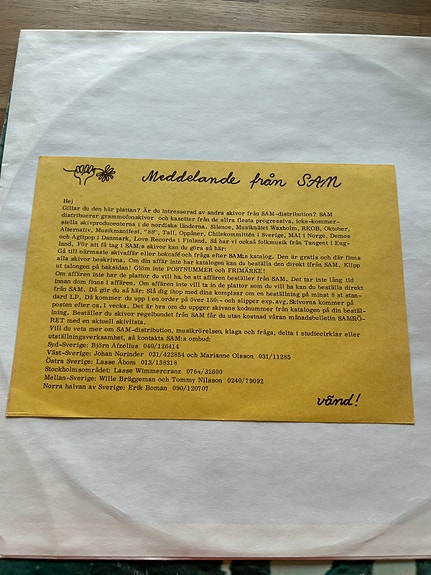 Meddelande från SAM
Hej
Gillar du den här plattan? Är du intresserad av andra skivor från SAM-distribution? SAM
distribuerar grammofonskivor och kasetter från de allra flesta progressiva, icke-kommer-
siella skivproducenterna i de nordiska länderna. Silence, Musiknätet Waxholm, REOB, Oktober,
Alternativ, Manifest, "85", Tall, Oppåner, Chilekommittén i Sverige, MAI i Norge, Demos
och Agitpop i Danmark, Love Records i Finland. Så har vi också folkmusik från Tangent i Eng-
land. För att få tag i SAM:s skivor kan du göra så här:
Gå till närmaste skivaffär eller bokcafé och fråga efter SAM:s katalog. Den är gratis och där finns
alla skivor beskrivna. Om din affär inte har katalogen kan du beställa den direkt ifrån SAM. Klipp
ut talongen på baksidan! Glöm inte POSTNUMMER och FRIMÄRKE!
Om affären inte har de plattor du vill ha, be att affären beställer från SAM. Det tar inte lång tid
innan dom finns i affären. Om affären inte vill ta in de plattor som du vill ha kan du beställa direkt
från SAM. Då gör du så här: Slå dig ihop med dina kompisar om en beställning på minst 6 st stan-
dard LP. Då kommer du upp i en order på över 150:- och slipper exp.avg. Skivorna kommer på
posten efter ca. 1 vecka. Det är bra om du uppger skivans kodnummer från katalogen på din beställ-
ning. Beställer du skivor regelbundet från SAM får du utan kostnad våran månadsbulletin SAMRÖ-
RET med en aktuell skivlista.
Vill du veta mer om SAM-distribution, musikrörelsen, klaga och fråga, delta i studiecirklar eller
utställningsverksamhet, så kontakta SAM:s ombud:
Syd-Sverige: Björn Afzelius 040/126414
Väst-Sverige: Johan Norinder 031/422854 och Marianne Olsson 031/11285
Östra Sverige: Lasse Åbom 013/138318
Stockholmsområdet: Lasse Wimmercranz 0764/32600
Mellan-Sverige: Wille Brüggeman och Tommy Nilsson 0240/79092
Norra halvan av Sverige: Erik Boman 090/120707
vänd!